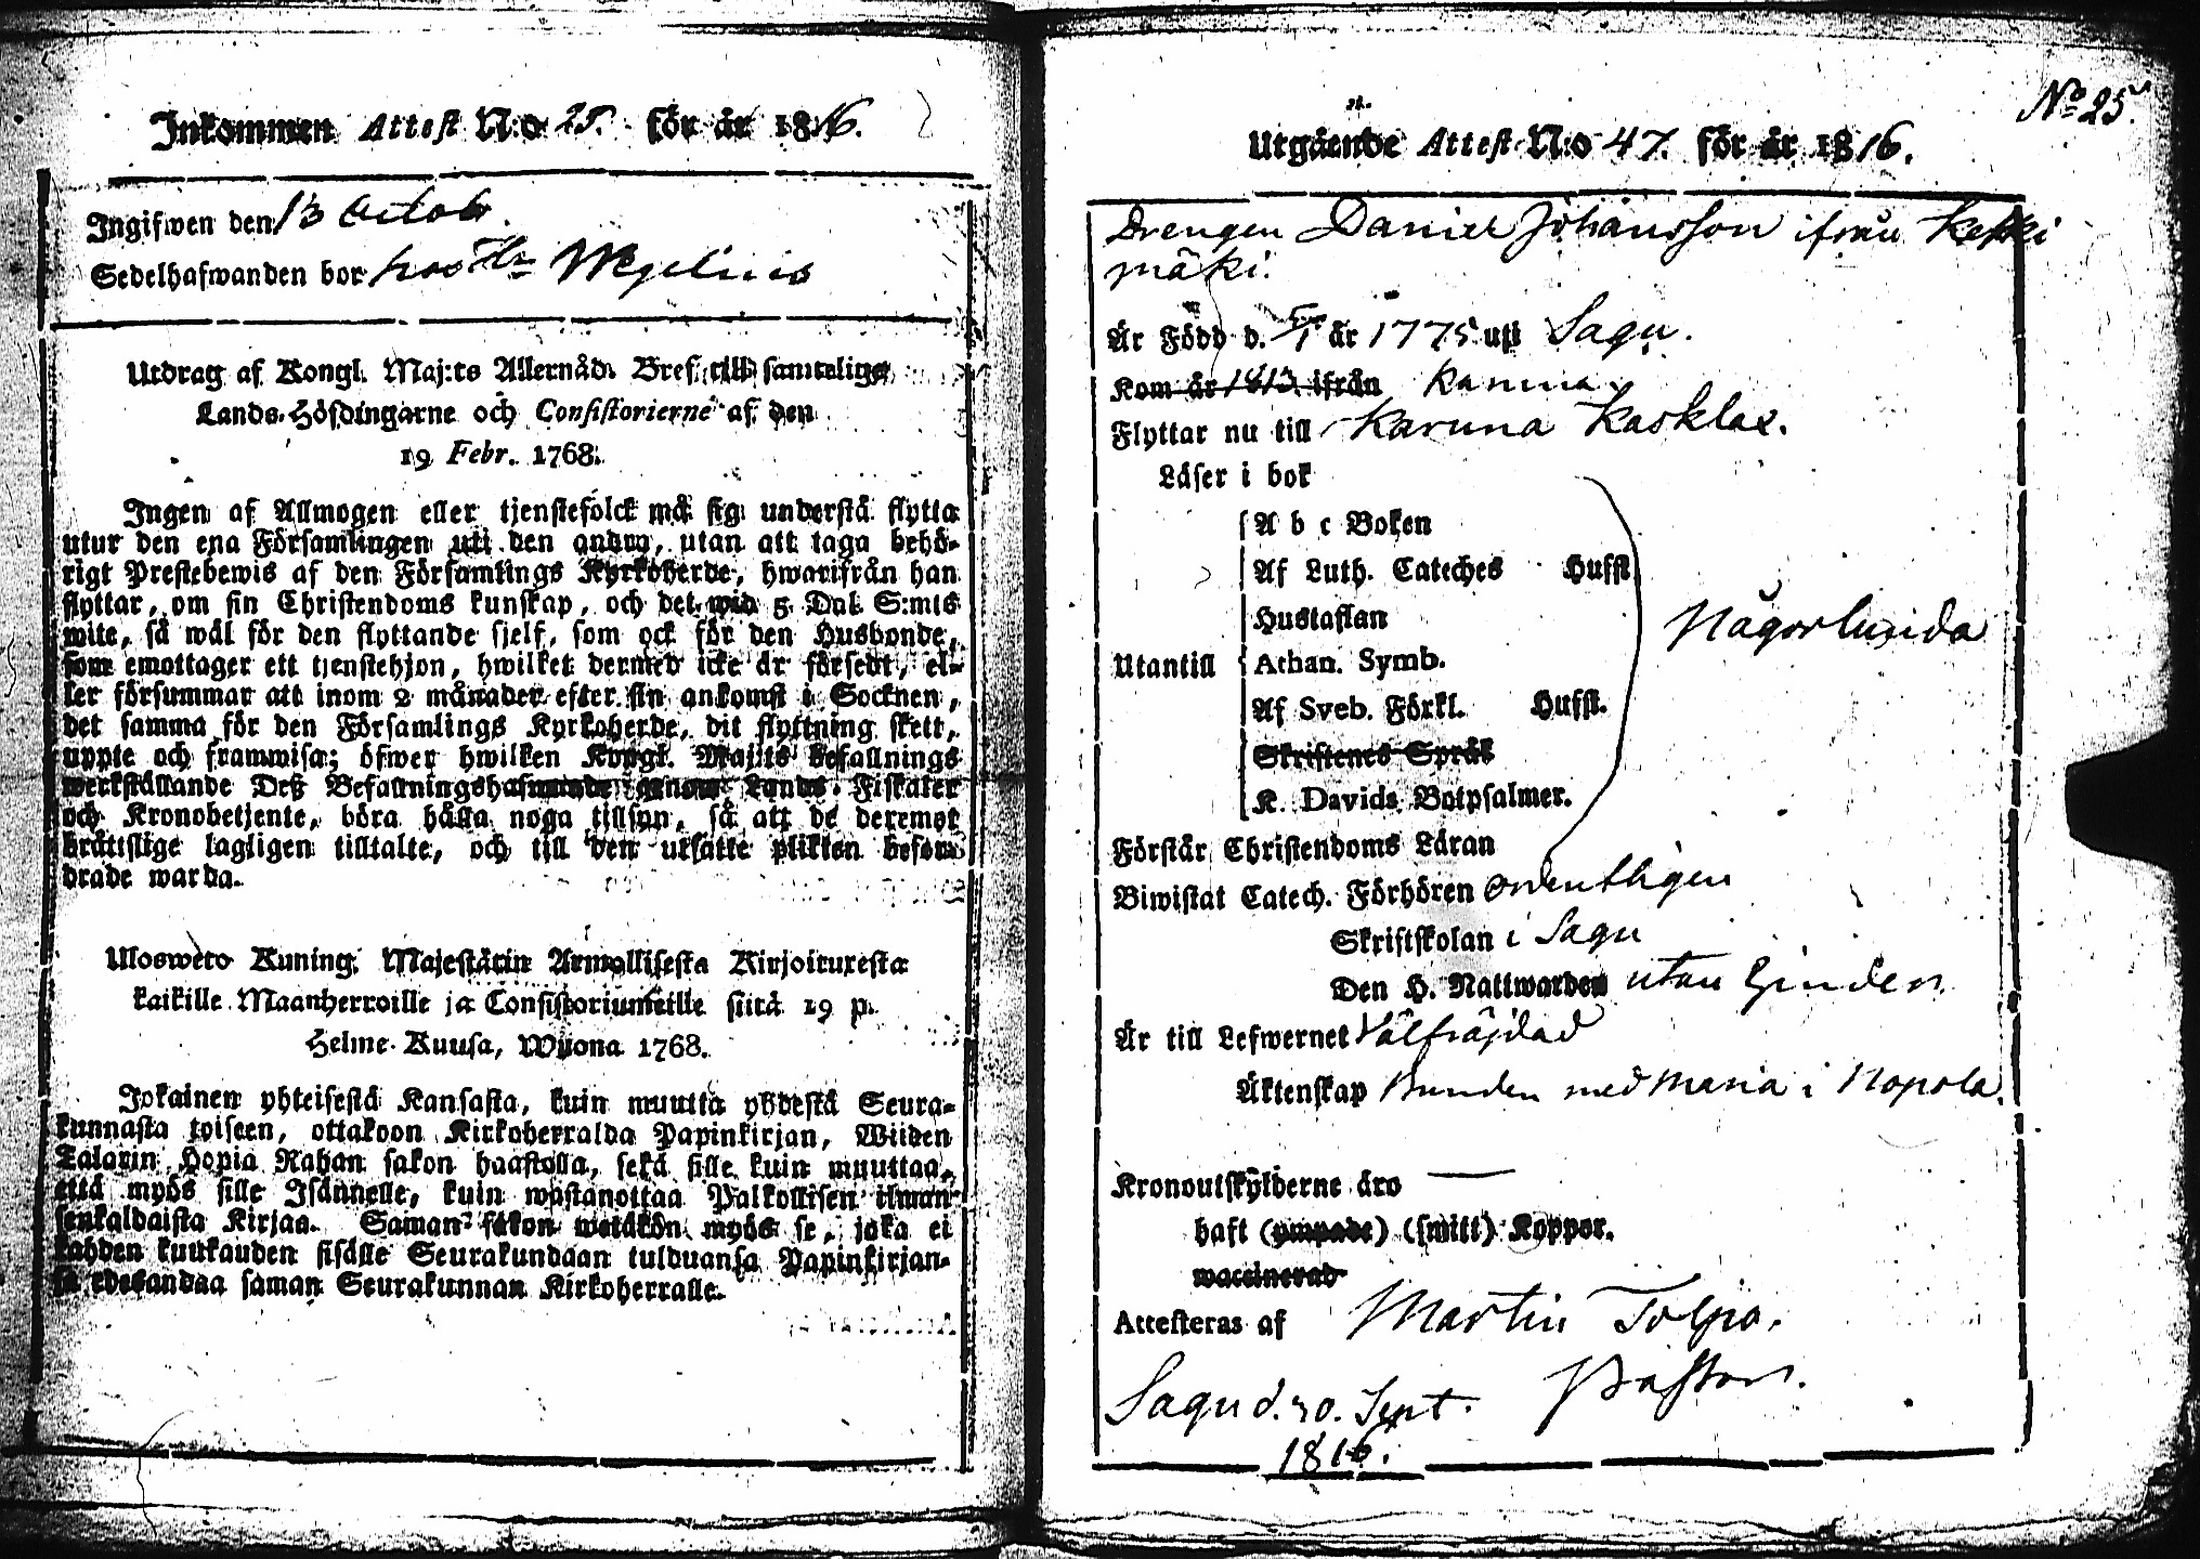 Inkommen Attest N:o 25. för år 1816.
Ingifwen den 13 Octob
Sedelhafwanden bor hos Hr Wegelius
Utdrag af Kongl. Maj:ts Allernåd. Bref till samtelige
Lands-Höfdingarne och Consistorierne af den
19 Febr. 1768.
Ingen af Allmogen eller tjenstefolck må sig understå flytta
utur den ena Församlingen uti den andra, utan att taga behö-
rigt Prestebewis af den Församlings Kyrkoherde, hwarifrån han
flyttar, om sin Christendoms kunskap, och det wid 5 Dal. S:mts
wite, så wäl för den flyttande sjelf, som ock för den Husbonde,
som emottager ett tjenstehjon, hwilket dermed icke är försedt, el-
ler försummar att inom 2 månader efter sin ankomst i Socknen,
det samma för den Församlings Kyrkoherde, dit flyttning skett,
uppte och framwisa; öfwer hwilken Kongl. Maj:ts befallnings
werkställande Deß Befallningshafwande genom Lands-Fiskaler
och Kronobetjente, böra hålla noga tillsyn, så att de deremot
bråttslige lagligen tilltalte, och till den utsatte plikten befor-
drade warda.
Ulosweto Kuning. Majestätin Armollisesta Kirjoituxesta
kaikille Maanherroille ja Consistoriumeille siitä 19 p.
Helme-Kuusa, Wuona 1768.
Jokainen yhteisestä Kansasta, kuin muutta yhdestä Seura-
kunnasta toiseen, ottakoon Kirkoherralda Papinkirjan, Wiiden
Talarin Hopia Rahan sakon haastolla, sekä sille kuin muuttaa,
että myös sille Isännelle, kuin wastanottaa Palkollisen ilman
senkaldaista Kirjaa. Saman sakon wetäkön myös se, joka ei
kahden kuukauden sisälle Seurakundaan tulduansa Papinkirjan-
sa edesandaa saman Seurakunnan Kirkoherralle.
No 25.
Utgående Attest N:o 47. för år 1816.
Drengen Daniel Johansson ifrån Keski
mäki.
Är Född d. år 1775 uti Sagu.
Kom år 1813 ifrån Karuna
Flyttar nu till Karuna Kasklax.
Läser i bok
A b c Boken
Af Luth. Cateches Hufst
Hustaflan
Någorlunda
Utantill Athan. Symb.
Af Sveb. Förkl. Hufst.
Skriftenes Språk
K. Davids Botpsalmer.
Förstår Christendoms Läran
Biwistat Catech. Förhören ordentligen
Skriftskolan i Sagu
Den H. Nattwarden utan hinder.
Är till Lefwernet Välfräjdad
Äktenskap Bunden med Maria i Nopola.
Kronoutskylderne äro
haft (ympade) (smitt) Koppor.
waccinerad
Attesteras af Martin Tolpo.
Pastor.
Sagu d. 30. Sept.
1816.